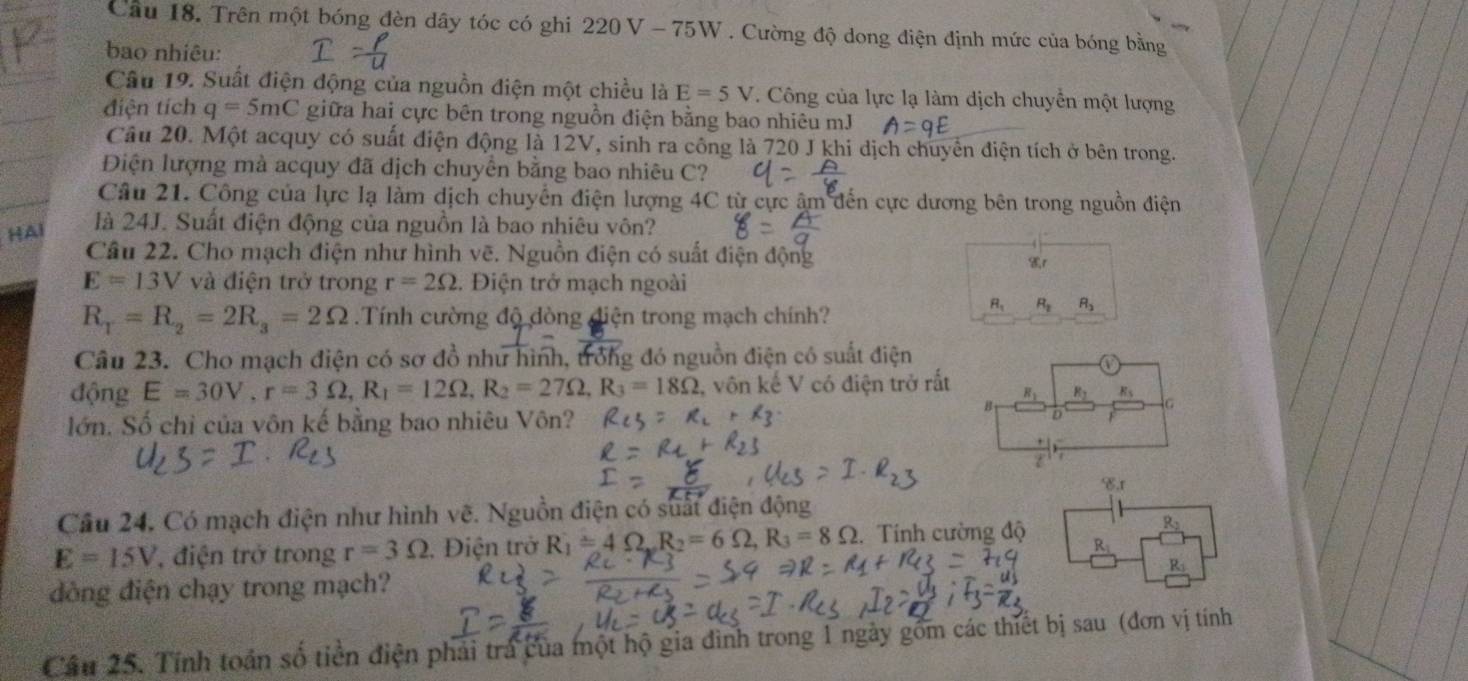 Câu 18. Trên một bóng đèn dây tóc có ghi 220 V – 75W . Cường độ dong điện định mức của bóng bằng
bao nhiêu: I = P/U
Câu 19. Suất điện động của nguồn điện một chiều là E = 5 V. Công của lực lạ làm dịch chuyển một lượng
điện tích q = 5mC giữa hai cực bên trong nguồn điện bằng bao nhiêu mJ A = qE
Câu 20. Một acquy có suất điện động là 12V, sinh ra công là 720 J khi dịch chuyển điện tích ở bên trong.
Điện lượng mà acquy đã dịch chuyển bằng bao nhiêu C? q = A/ℰ
Câu 21. Công của lực lạ làm dịch chuyển điện lượng 4C từ cực âm đến cực dương bên trong nguồn điện
HAI
là 24J. Suất điện động của nguồn là bao nhiêu vôn? ℰ = A/q
Câu 22. Cho mạch điện như hình vẽ. Nguồn điện có suất điện động
ℰ,r
E = 13V và điện trở trong r = 2Ω. Điện trở mạch ngoài
R₁ R₂ R₃
R₁ = R₂ = 2R₃ = 2Ω .Tính cường độ dòng điện trong mạch chính?
Câu 23. Cho mạch điện có sơ đồ như hình, trong đó nguồn điện có suất điện
V
động E = 30V , r = 3 Ω, R₁ = 12Ω, R₂ = 27Ω, R₃ = 18Ω, vôn kế V có điện trở rất
B R₁ D R₂ F R₃ G
lớn. Số chỉ của vôn kế bằng bao nhiêu Vôn? R₂₃ = R₂ + R₃
U₂₃ = I . R₂₃ R = R₁ + R₂₃
I = ℰ/R+r , U₂₃ = I . R₂₃
ℰ,r
Câu 24. Có mạch điện như hình vẽ. Nguồn điện có suất điện động
E = 15V, điện trở trong r = 3 Ω. Điện trở R₁ = 4 Ω, R₂ = 6 Ω, R₃ = 8 Ω. Tính cường độ
R₁ R₂ R₃
dòng điện chạy trong mạch? R₂₃ = R₂ . R₃/R₂+R₃ = 3,4 ⇒ R = R₁ + R₂₃ = 7,4
I = ℰ/R+r , U₂ = U₃ = U₂₃ = I . R₂₃ , I₂ = ; I₃ = U₃/R₃
Câu 25. Tính toán số tiền điện phải trả của một hộ gia đình trong 1 ngày gồm các thiết bị sau (đơn vị tính